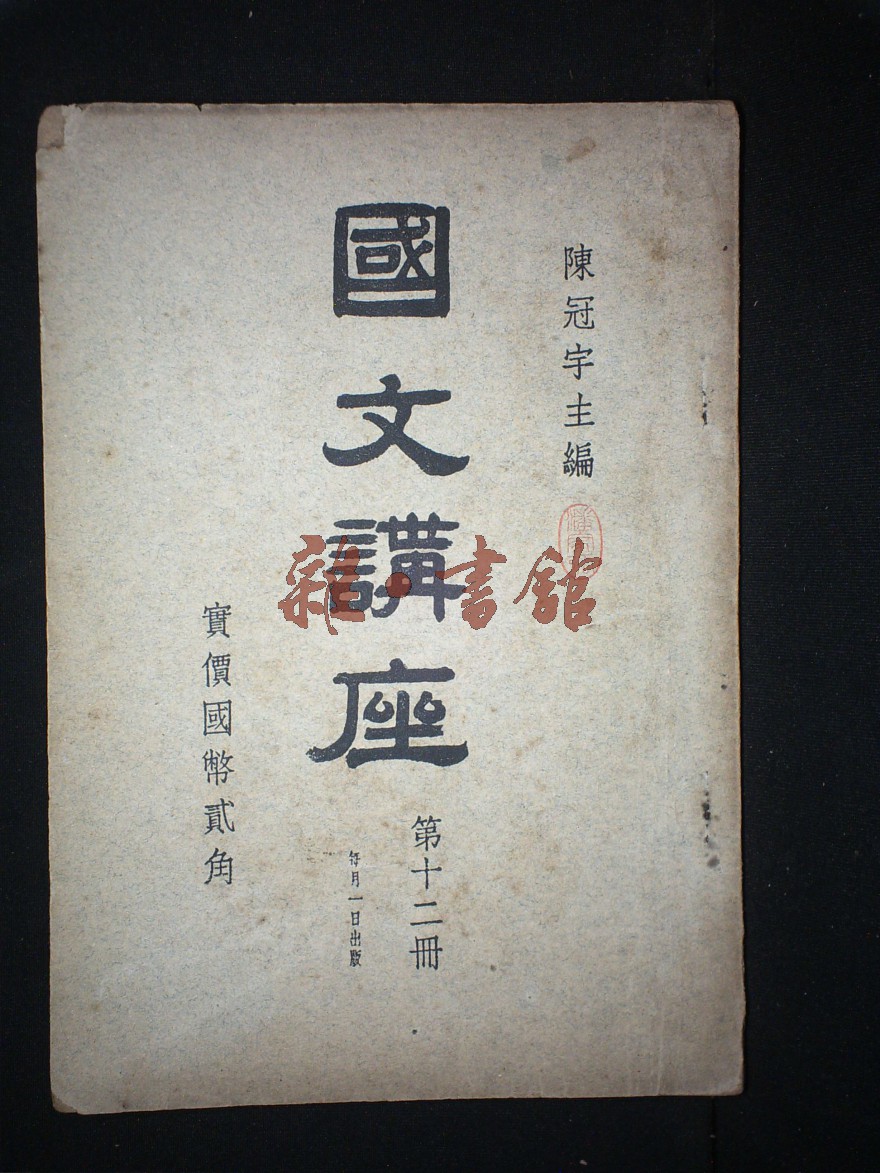 陳冠宇主編
國文講座
第十二冊
每月一日出版
實價國幣貳角
雜·書館